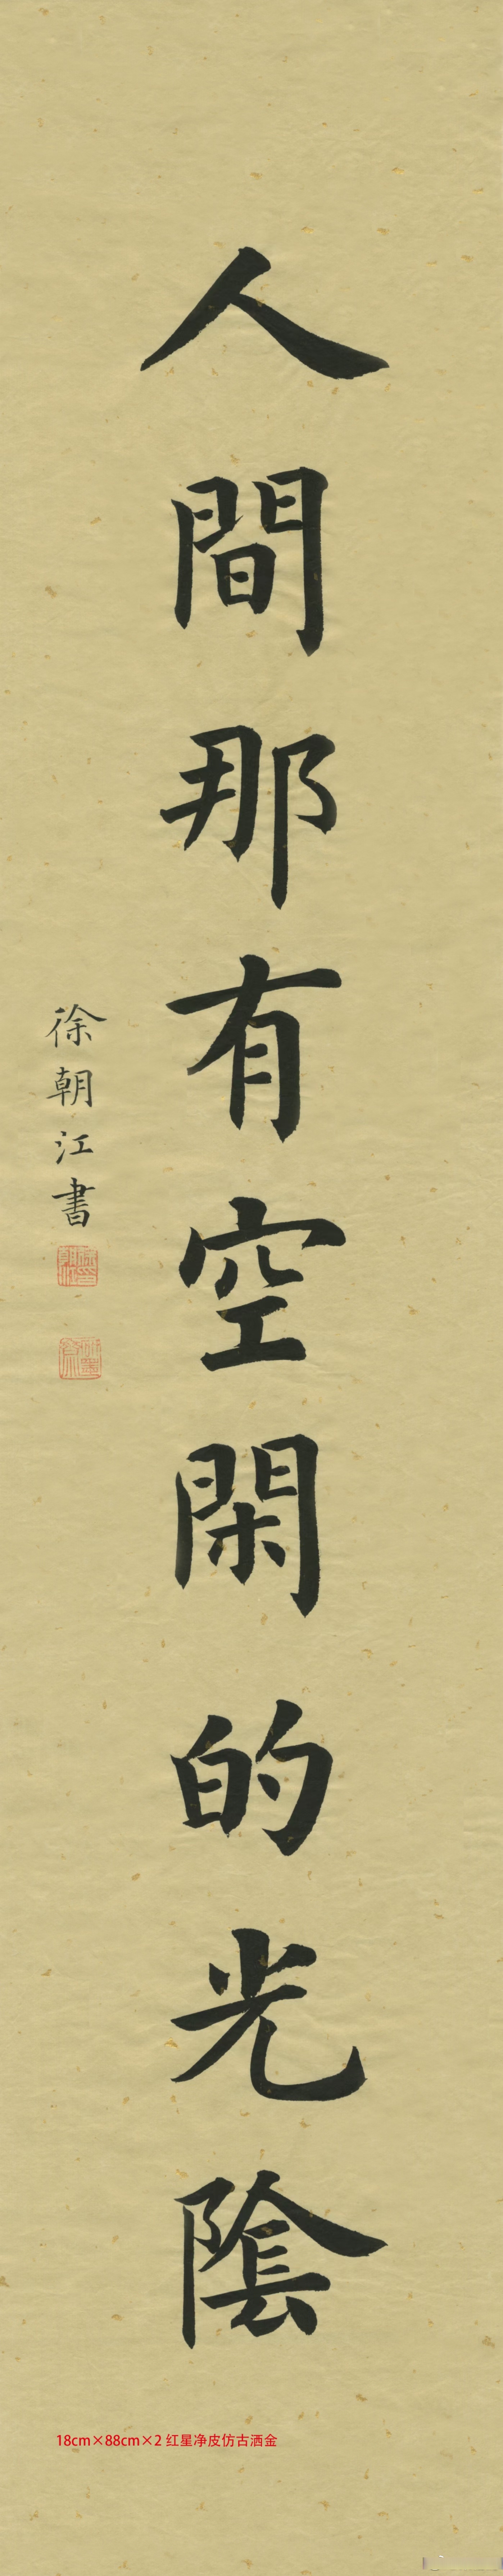 人間那有空閑的光陰
徐朝江書
18cm×88cm×2 红星净皮仿古洒金